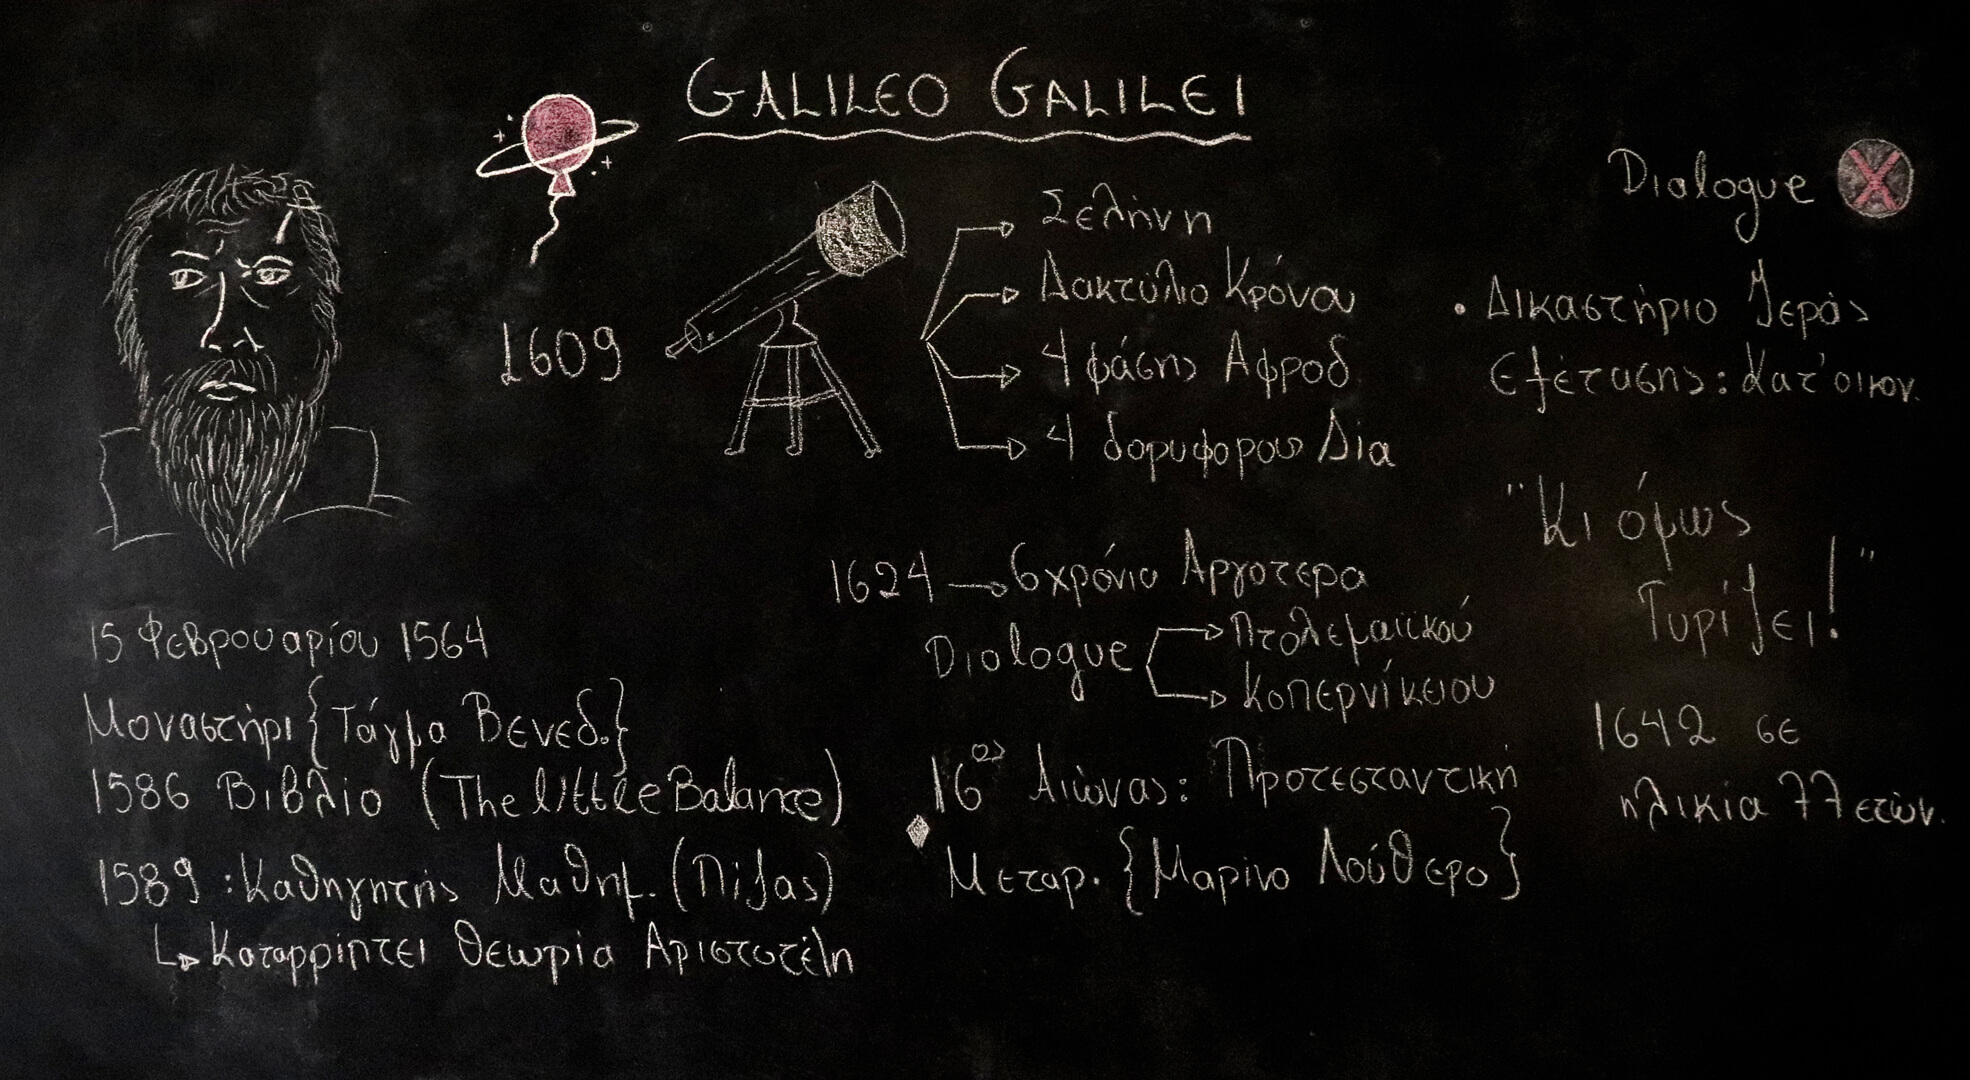 GALILEO GALILEI
1609
Σελήνη
Δακτύλιο Κρόνου
4 φάσης Αφροδ
4 δορυφορους Δία
15 Φεβρουαρίου 1564
Μοναστήρι {Τάγμα Βενεδ.}
1586 Βιβλίο (The little Balance)
1589 : Καθηγητής Μαθημ. (Πίζας)
Καταρρίπτει θεωρία Αριστοτέλη
1624 → 6χρόνια Αργότερα
Dialogue
Πτολεμαϊκού
Κοπερνίκειου
16ος Αιώνας: Προτεσταντική
Μεταρ. {Μαρίνο Λούθερο}
Dialogue X
• Δικαστήριο Ιεράς
Εξέτασης: Κατ'οικον.
"Κι όμως
Γυρίζει!"
1642 σε
ηλικία 77 ετών.